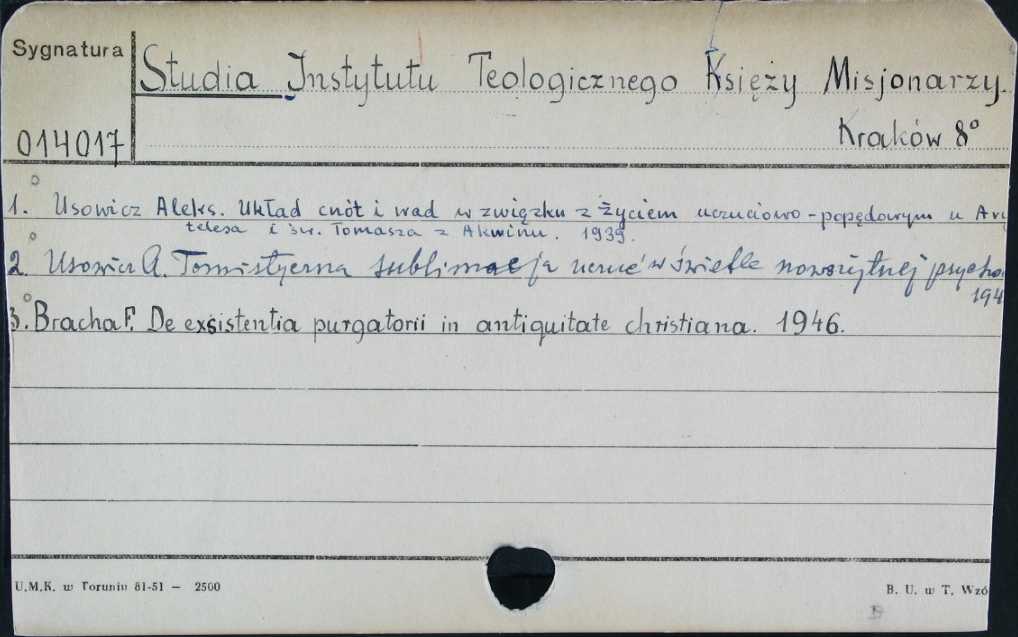 Sygnatura
Studia Instytutu Teologicznego Księży Misjonarzy.
014017
Kraków 8°
1. Usowicz Aleks. Układ cnót i wad w związku z życiem uczuciowo-popędowym u Ary
telesa i św. Tomasza z Akwinu. 1939.
2. Usowicz A. Tomistyczna sublimacja uczuć w świetle nowożytnej psycho
194
3. Bracha F. De exsistentia purgatorii in antiquitate christiana. 1946.
U.M.K. w Toruniu 81-51 — 2500
B. U. w T. Wzó